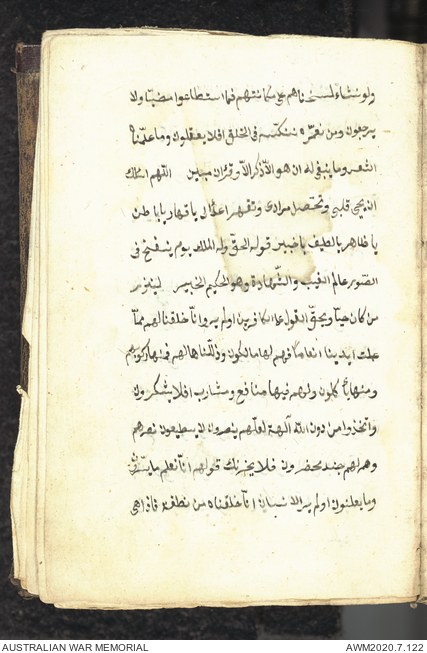 ولو نشاء لمسخناهم على مكانتهم فما استطاعوا مضيا ولا
يرجعون ومن نعمّره ننكّسه في الخلق افلا يعقلون وما علّمناه
الشعر وما ينبغي له ان هو الّا ذكر وقرآن مبين اللهم اسئلك
ان يحيى قلبي وتحصل مرادى وتقهر اعدائى يا قهار يا باطن
يا ظاهر يا لطيف يا خبير قوله الحقّ وله الملك يوم ينفخ فى
الصّور عالم الغيب والشّهادة وهو الحكيم الخبير لينذر
من كان حيّا ويحقّ القول على الكافرين اولم يروا انّا خلقنا لهم ممّا
عملت ايدينا انعاما فهم لها مالكون وذلّلناها لهم فمنها ركوبهم
ومنها يأكلون ولهم فيها منافع ومشارب افلا يشكرون
واتّخذوا من دون الله آلهة لعلّهم ينصرون لا يستطيعون نصرهم
وهم لهم جند محضرون فلا يحزنك قولهم انّا نعلم ما يسرّون
وما يعلنون اولم ير الانسان انّا خلقناه من نطفة فاذا هى
AUSTRALIAN WAR MEMORIAL
AWM2020.7.122